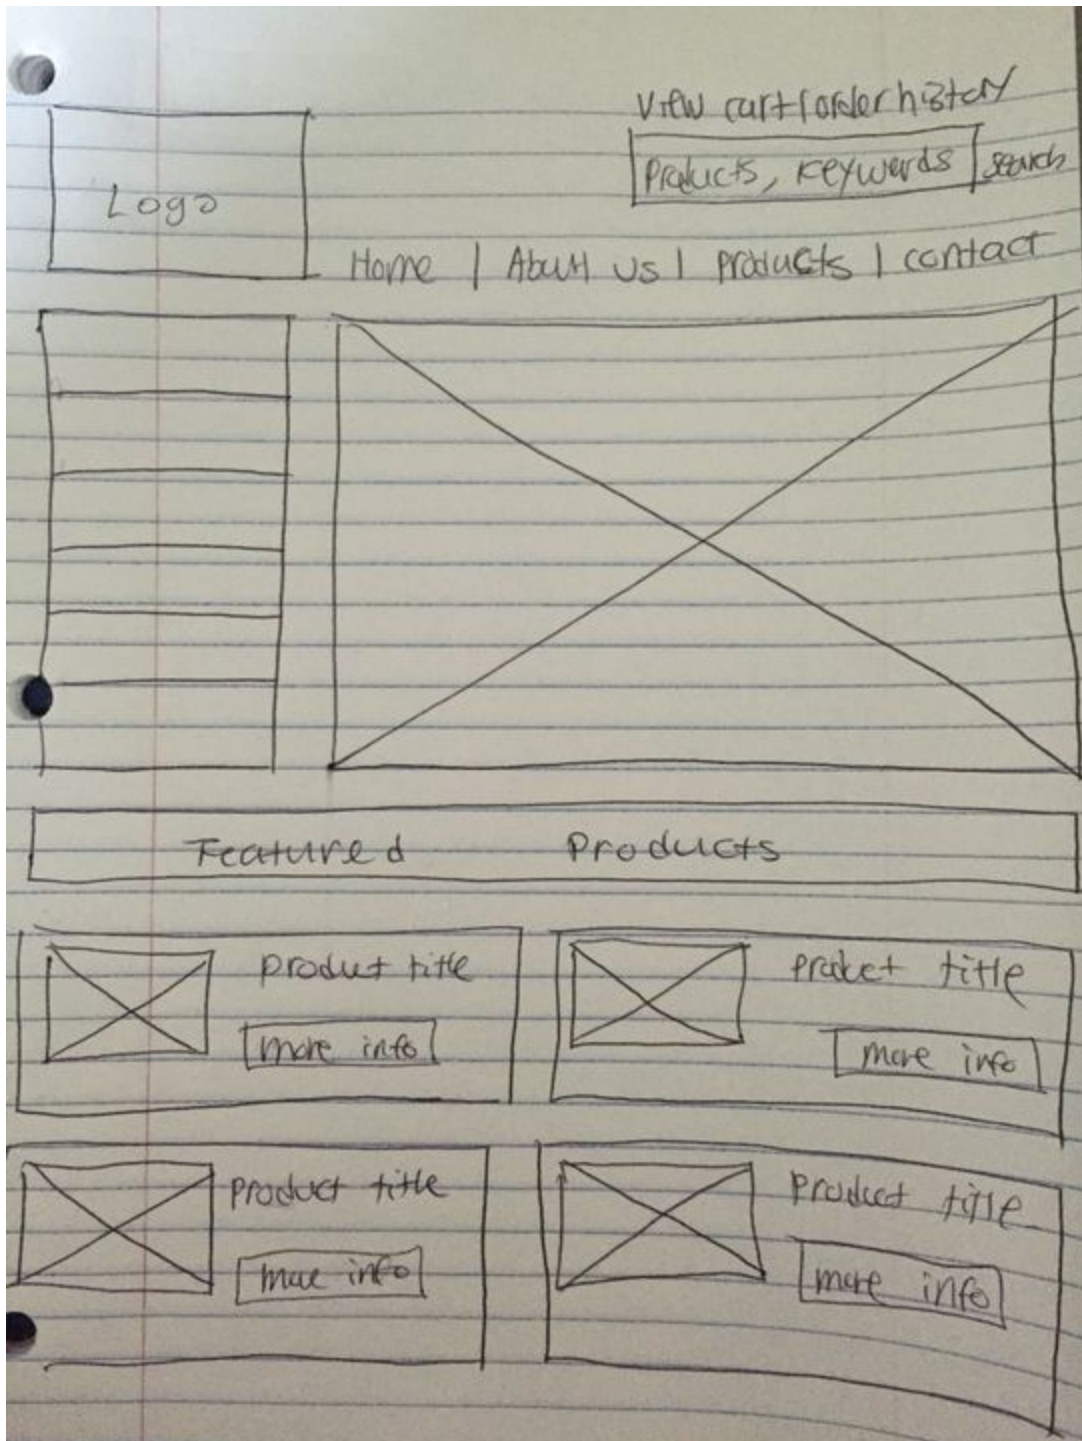 View cart/order history
Products, keywords search
Logo
Home | About us | products | contact
Featured Products
product title
more info
product title
more info
product title
more info
product title
more info